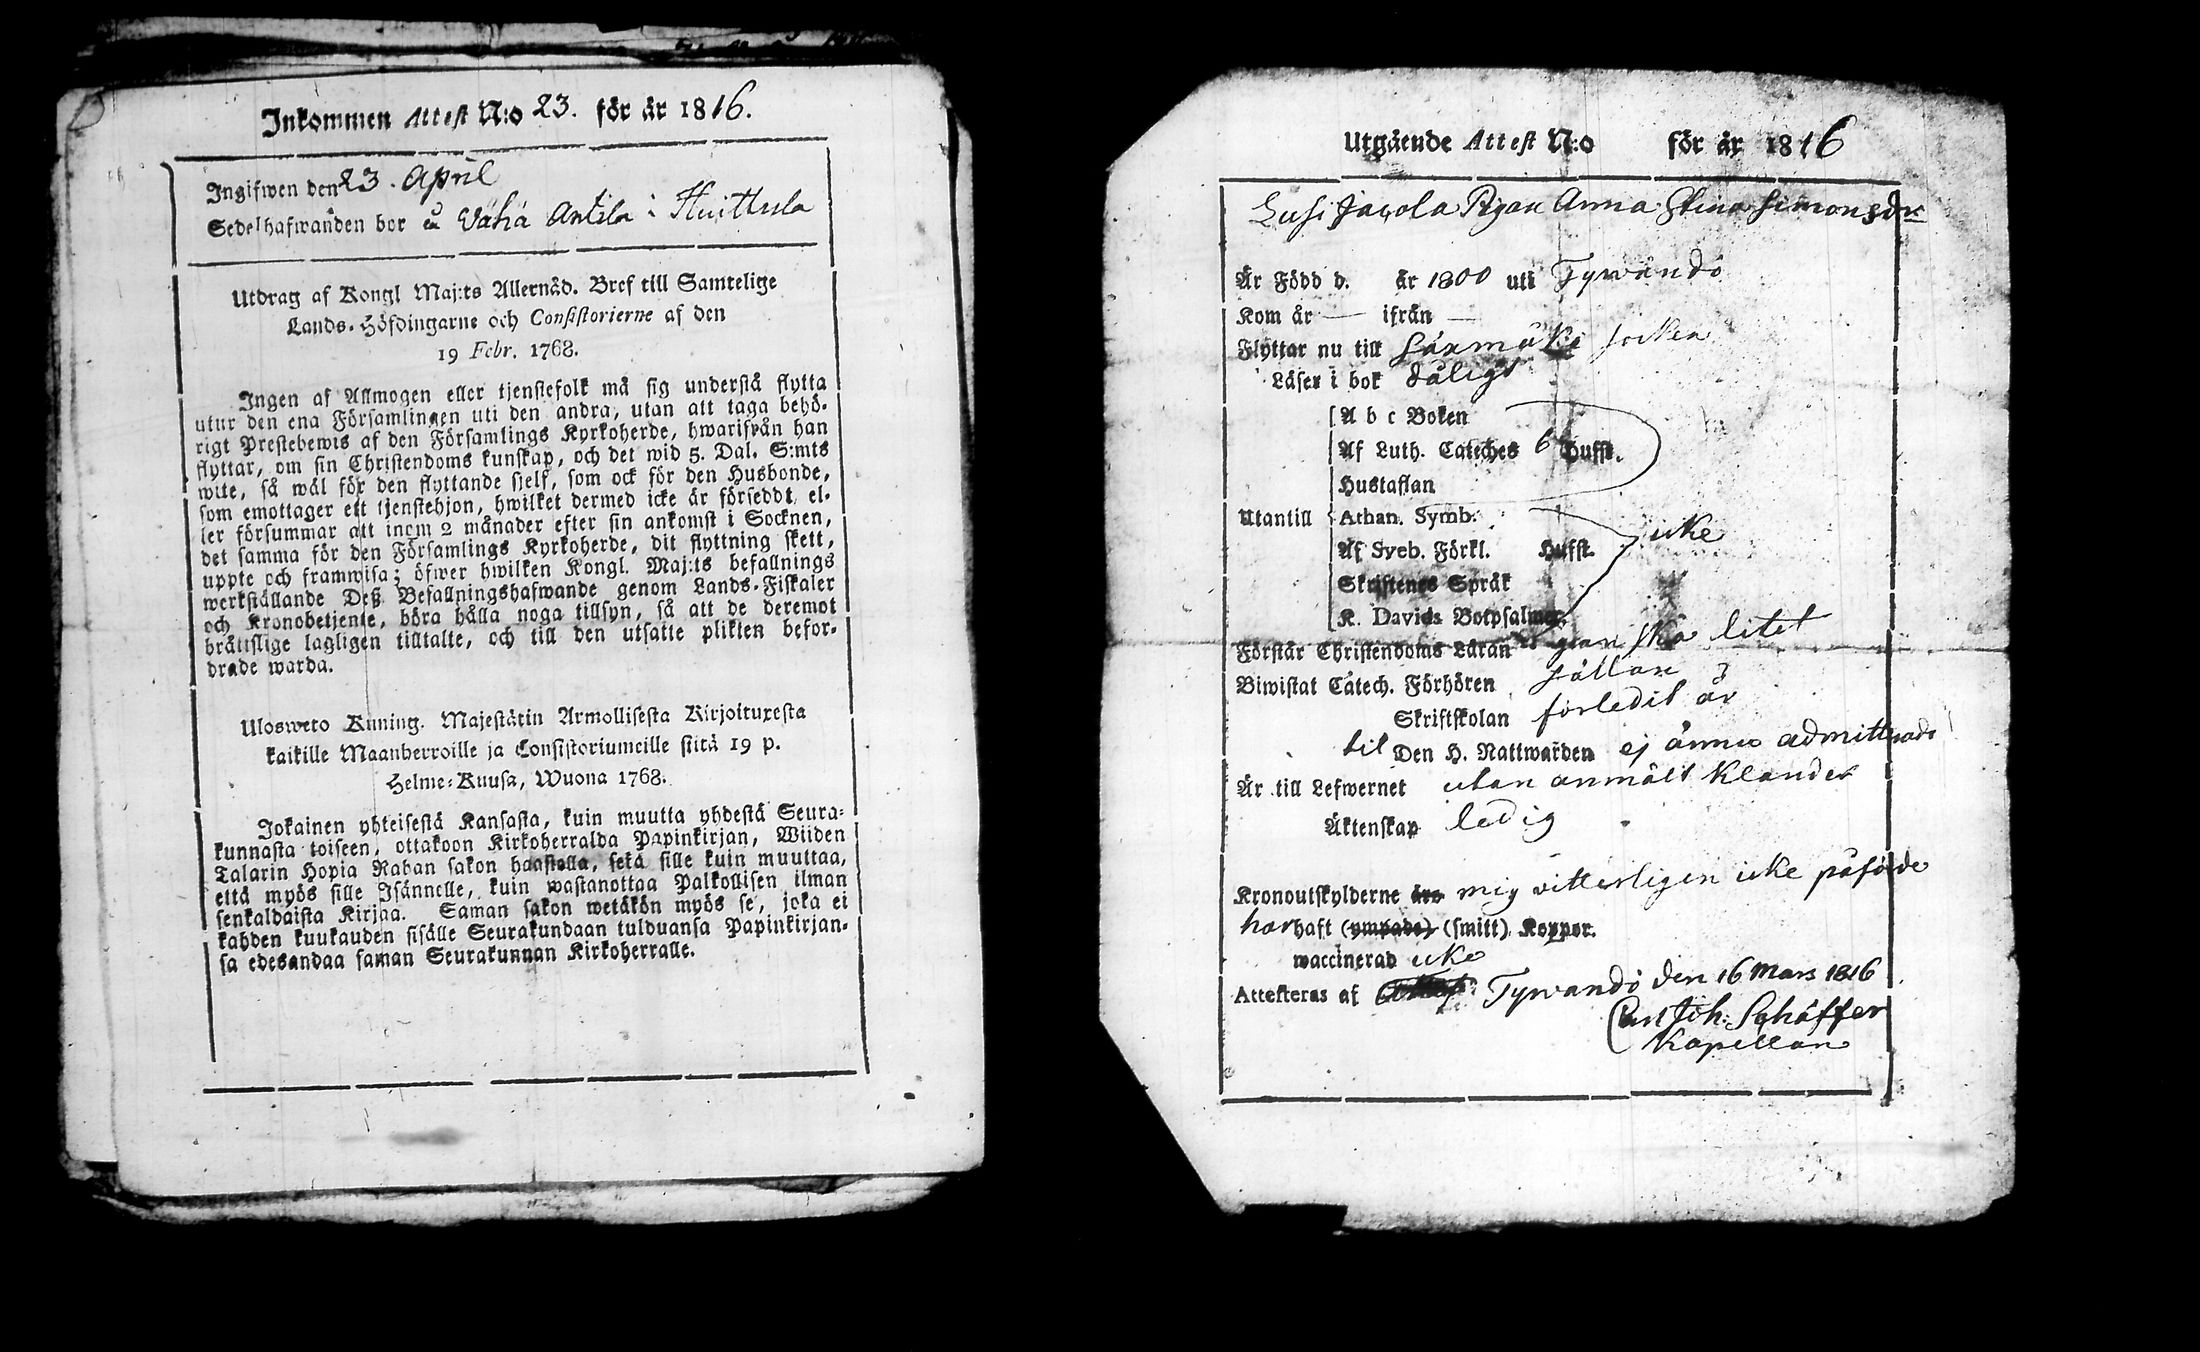 Inkommen Attest N:o 23. för år 1816.
Ingifwen den 23. April
Sedelhafwanden bor å Vähä Antila i Huittula
Utdrag af Kongl Maj:ts Allernåd. Bref till Samtelige
Lands-Höfdingarne och Consistorierne af den
19 Febr. 1768.
Ingen af Allmogen eller tjenstefolk må sig understå flytta
utur den ena Församlingen uti den andra, utan att taga behö-
rigt Prestebewis af den Församlings Kyrkoherde, hwarifrån han
flyttar, om sin Christendoms kunskap, och det wid 5. Dal. S:mts
wite, så wäl för den flyttande sjelf, som ock för den Husbonde,
som emottager ett tjenstehjon, hwilket dermed icke är förseddt, el-
ler försummar att inom 2 månader efter sin ankomst i Socknen,
det samma för den Församlings Kyrkoherde, dit flyttning skett,
uppte och framwisa; öfwer hwilken Kongl. Maj:ts befallnings
werkställande Deß Befallningshafwande genom Lands-Fiskaler
och Kronobetjente, böra hålla noga tillsyn, så att de deremot
bråttslige lagligen tilltalte, och till den utsatte plikten befor-
drade warda.
Ulosweto Kuning. Majestätin Armollisesta Kirjoituxesta
kaikille Maanherroille ja Consistoriumeille siitä 19 p.
Helme-Kuusa, Wuona 1768.
Jokainen yhteisestä Kansasta, kuin muutta yhdestä Seura-
kunnasta toiseen, ottakoon Kirkoherralda Papinkirjan, Wiiden
Talarin Hopia Rahan sakon haastolla, sekä sille kuin muuttaa,
että myös sille Isännelle, kuin wastanottaa Palkollisen ilman
senkaldaista Kirjaa. Saman sakon wetäkön myös se, joka ei
kahden kuukauden sisälle Seurakundaan tulduansa Papinkirjan-
sa edesandaa saman Seurakunnan Kirkoherralle.
Utgående Attest N:o för år 1816
Susi Jacola Pigan Anna Stina Simonsdr
Är Född d. år 1800 uti Tyrwändö
Kom år — ifrån —
Flyttar nu till Säxmäki socken
Läser i bok dåligt
A b c Boken
Af Luth. Catèches 6 Hufst.
Hustaflan
Utantill Athan. Symb.
Af Sveb. Förkl. Hufst. icke
Skriftenes Språk
K. Davids Botpsalmer.
Förstår Christendoms Läran ganska litet
Biwistat Catech. Förhören sällan
Skriftskolan förledit år
til Den H. Nattwarden ej ännu admitterad
Är till Lefwernet utan anmält klander
Äktenskap ledig
Kronoutskylderne äro mig vitterligen icke påförde
har haft (ympade) (smitt) Koppor.
waccinerad icke
Attesteras af Tyrvandö den 16 Mars 1816
Carl Joh: Schäffer
Kapellan